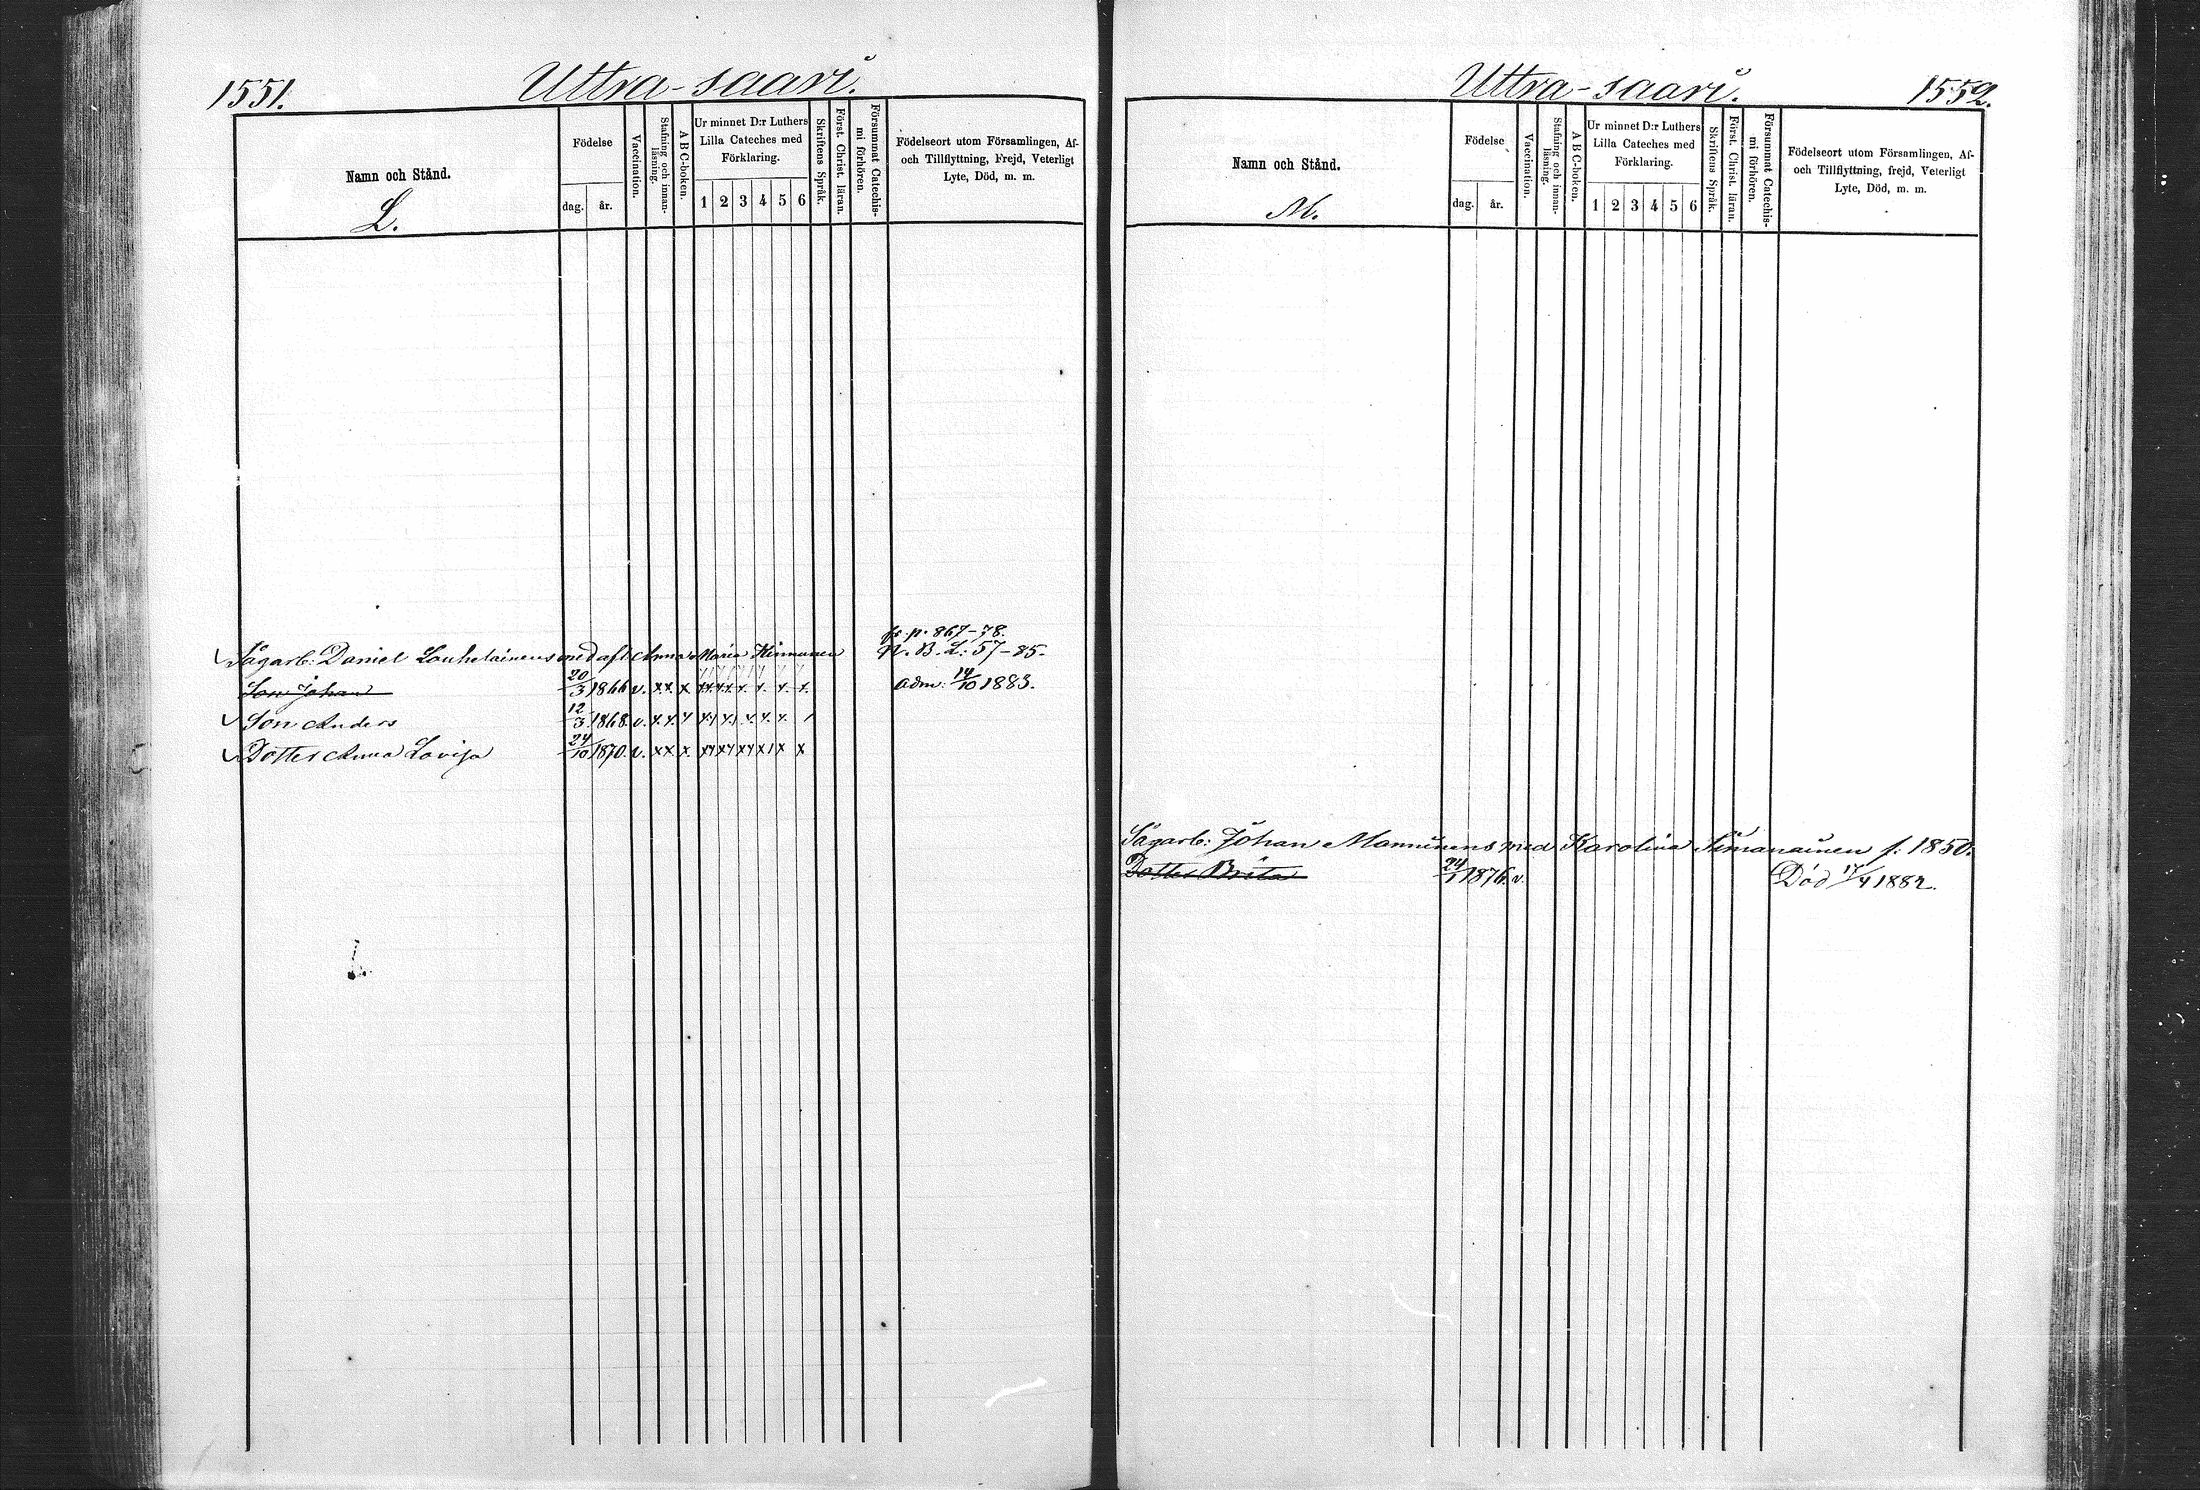 1551.
Uttra-saari.
Namn och Stånd.
L.
Födelse
dag.
år.
Vaccination.
Stafning och innan-
läsning.
A B C-boken.
Ur minnet D:r Luthers
Lilla Cateches med
Förklaring.
1 2 3 4 5 6
Skriftens Språk.
Först. Christ. läran.
Försummat Catechis-
mi förhören.
Födelseort utom Församlingen, Af-
och Tillflyttning, Frejd, Veterligt
Lyte, Död, m. m.
fr. p. 867-78.
Sågarb: Daniel Louhelainens med afl. Anna Maria Kinnunen N. B. L: 57-85.
Son Johan 20/3 1866 v. x.x. x adm: 14/10 1883.
Son Anders 12/3 1868. v.
Dotter Anna Lovisa 24/10 1870. v. xx x.
Uttra-saari.
1552.
Namn och Stånd.
M.
Födelse
dag.
år.
Vaccination.
Stafning och innan-
läsning.
A B C-boken.
Ur minnet D:r Luthers
Lilla Cateches med
Förklaring.
1 2 3 4 5 6
Skriftens Språk.
Först. Christ. läran.
Försummat Catechis-
mi förhören.
Födelseort utom Församlingen, Af-
och Tillflyttning, frejd, Veterligt
Lyte, Död, m. m.
Sågarb: Johan Manninens med Karolina Simanainen f: 1850.
Dotter Brita 24/1 1876. v. Död 17/4 1882.